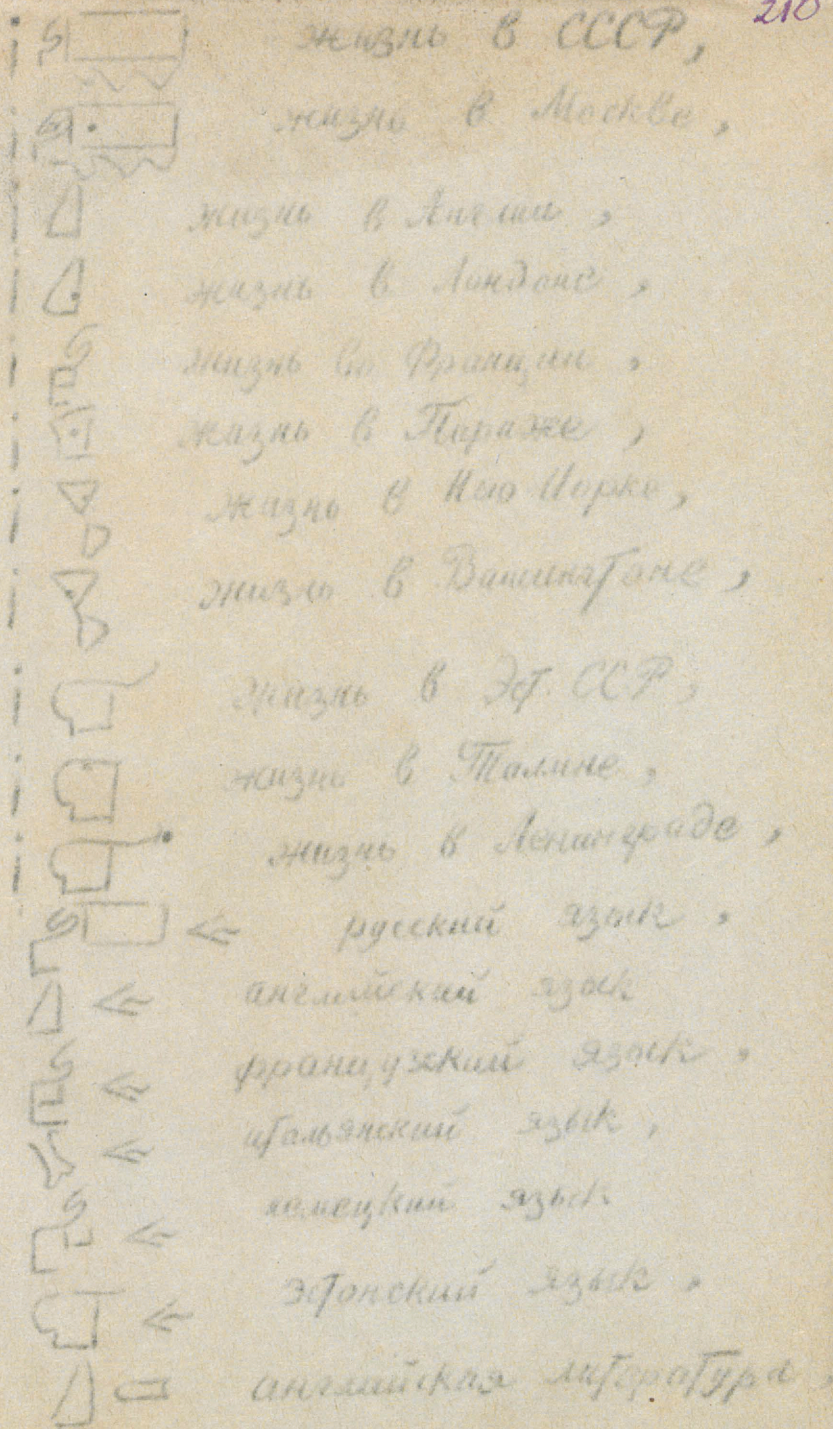 210
жизнь в СССР,
жизнь в Москве,
жизнь в Англии,
жизнь в Лондоне,
жизнь во Франции,
жизнь в Париже,
жизнь в Нью Йорке,
жизнь в Вашингтоне,
жизнь в Эст. ССР,
жизнь в Талине,
жизнь в Ленинграде,
русский язык,
английский язык
французский язык,
итальянский язык,
немецкий язык
эстонский язык,
английская литература,